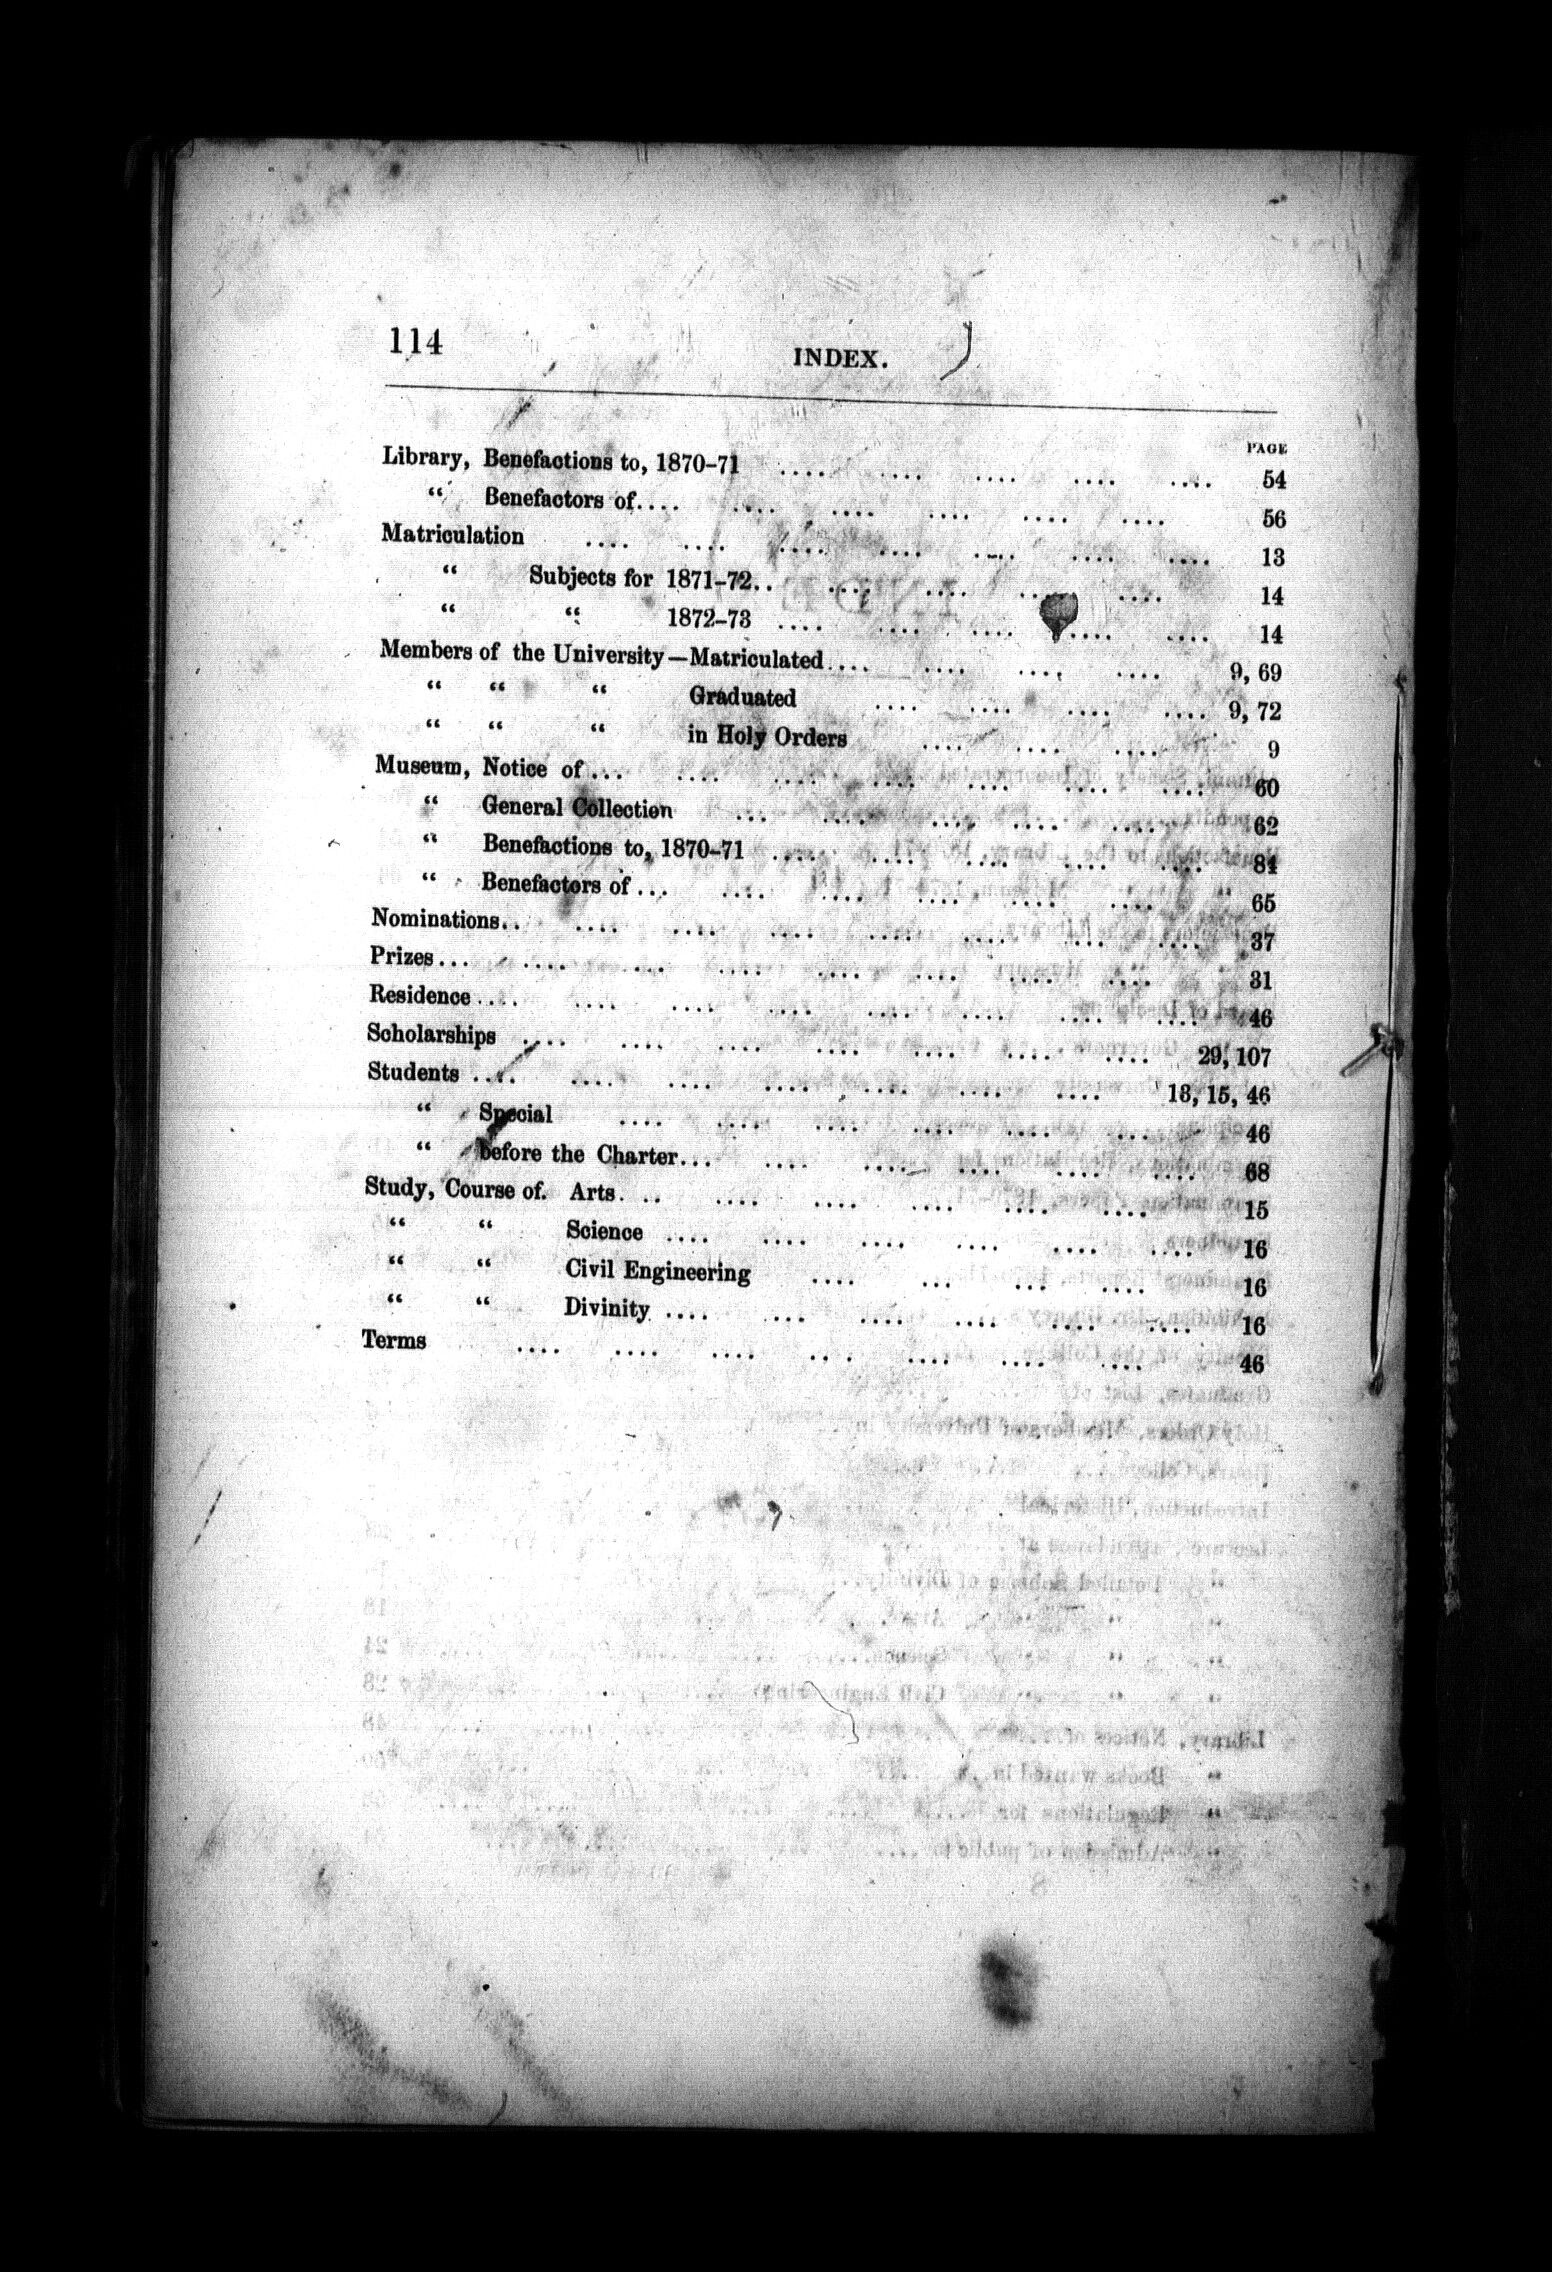 114
INDEX.
PAGE
Library, Benefactions to, 1870-71 .... .... .... .... .... 54
“ Benefactors of.... .... .... .... .... .... 56
Matriculation .... .... .... .... .... .... .... 13
“ Subjects for 1871-72.. .... .... .... .... 14
“ “ 1872-73 .... .... .... .... .... 14
Members of the University—Matriculated.... .... .... .... 9, 69
“ “ “ Graduated .... .... .... .... 9, 72
“ “ “ in Holy Orders .... .... .... 9
Museum, Notice of... .... .... .... .... .... .... 60
“ General Collection ... .... .... .... .... 62
“ Benefactions to, 1870-71 .... .... .... .... .... 84
“ Benefactors of... .... .... .... .... .... 65
Nominations.. .... .... .... .... .... .... .... 37
Prizes... .... .... .... .... .... .... .... 31
Residence.... .... .... .... .... .... .... .... 46
Scholarships .... .... .... .... .... .... .... 29, 107
Students .... .... .... .... .... .... .... 13, 15, 46
“ Special .... .... .... .... .... .... 46
“ before the Charter... .... .... .... .... .... 68
Study, Course of. Arts. ... .... .... .... .... .... 15
“ “ Science .... .... .... .... .... .... 16
“ “ Civil Engineering .... ... ... .... 16
“ “ Divinity .... ... .... .... .... .... 16
Terms .... .... .... .... .... .... .... 46